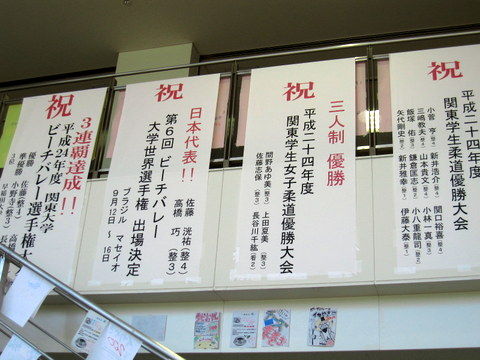 祝
3連覇達成!!
平成24年度 関東大学
ビーチバレー選手権大
優勝 佐藤(整4)
準優勝 小野寺(整3)
祝
日本代表!!
第6回 ビーチバレー
大学世界選手権 出場決定
佐藤 洸祐(整4)
高橋 巧(整3)
ブラジル マセイオ
9月12日 ~ 16日
祝
三人制 優勝
平成二十四年度
関東学生女子柔道優勝大会
間野あゆ美(整3) 上田夏美(整3)
佐藤志保(整3) 長谷川千紘(看2)
祝
平成二十四年度
関東学生柔道優勝大会
小菅 亨(整4) 新井浩介(整4) 関口裕喜(整4)
三嶋教夫(整4) 山本貴文(整4) 小林一真(整3)
飯塚 佑(整3) 鎌倉匡志(整2) 小八重龍司(整2)
矢代剛史(整2) 新井雅幸(整1) 伊藤大泰(整1)